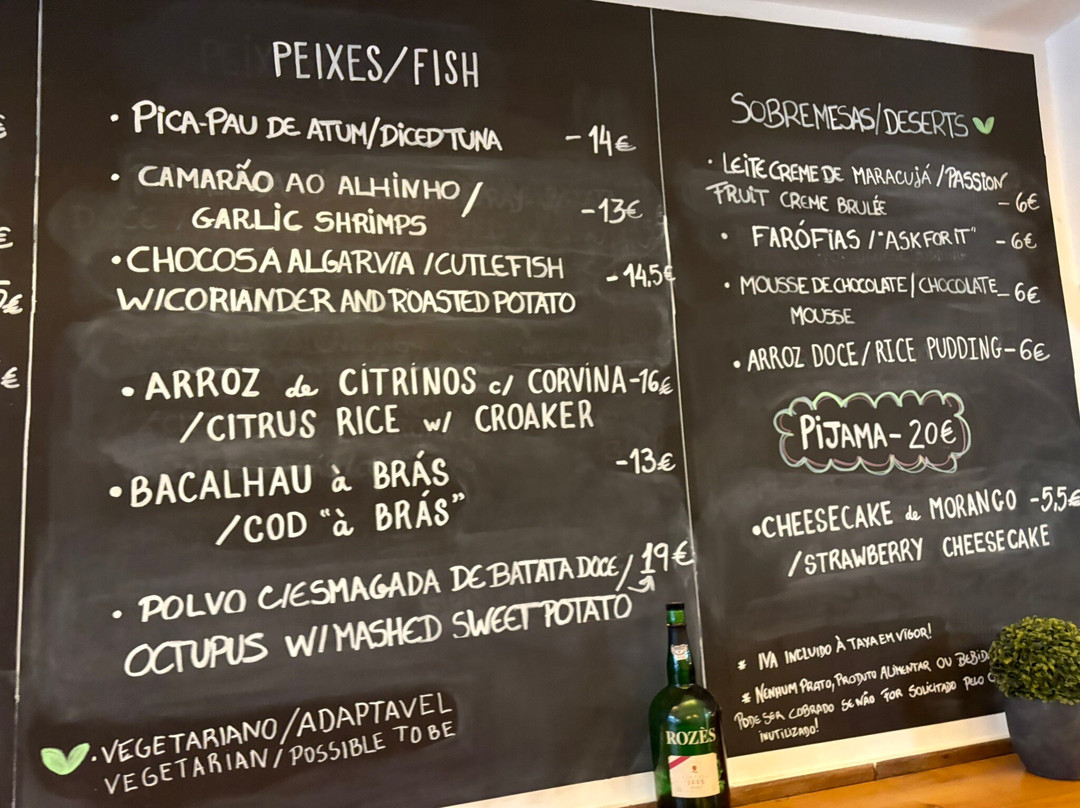 PEIXES/FISH
· PICA-PAU DE ATUM/DICED TUNA - 14€
· CAMARÃO AO ALHINHO/
GARLIC SHRIMPS - 13€
· CHOCOS A ALGARVIA /CUTLEFISH - 14,5€
W/CORIANDER AND ROASTED POTATO
· ARROZ de CITRINOS c/ CORVINA - 16€
/CITRUS RICE w/ CROAKER
· BACALHAU à BRÁS - 13€
/COD "à BRÁS"
· POLVO C/ESMAGADA DE BATATA DOCE/ 19€
OCTUPUS W/MASHED SWEET POTATO
· VEGETARIANO/ADAPTAVEL
VEGETARIAN/POSSIBLE TO BE
SOBREMESAS/DESERTS
· LEITE CREME DE MARACUJÁ /PASSION
FRUIT CREME BRULÉE - 6€
· FARÓFIAS /"ASK FOR IT" - 6€
· MOUSSE DE CHOCOLATE/CHOCOLATE - 6€
MOUSSE
· ARROZ DOCE/RICE PUDDING - 6€
PIJAMA - 20€
· CHEESECAKE de MORANGO - 5,5€
/STRAWBERRY CHEESECAKE
* IVA INCLUIDO À TAXA EM VIGOR!
* NENHUM PRATO, PRODUTO ALIMENTAR OU
PODE SER COBRADO SE NÃO FOR SOLICITADO PELO
INUTILIZADO!
ROZÈS